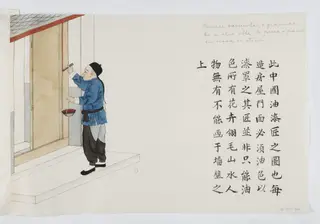 此中國油漆匠之圖也每
造房屋門面必須油色以
漆罩之其匠並非只能油
色所有花卉翎毛山水人
物無有不能画于墻壁之
上